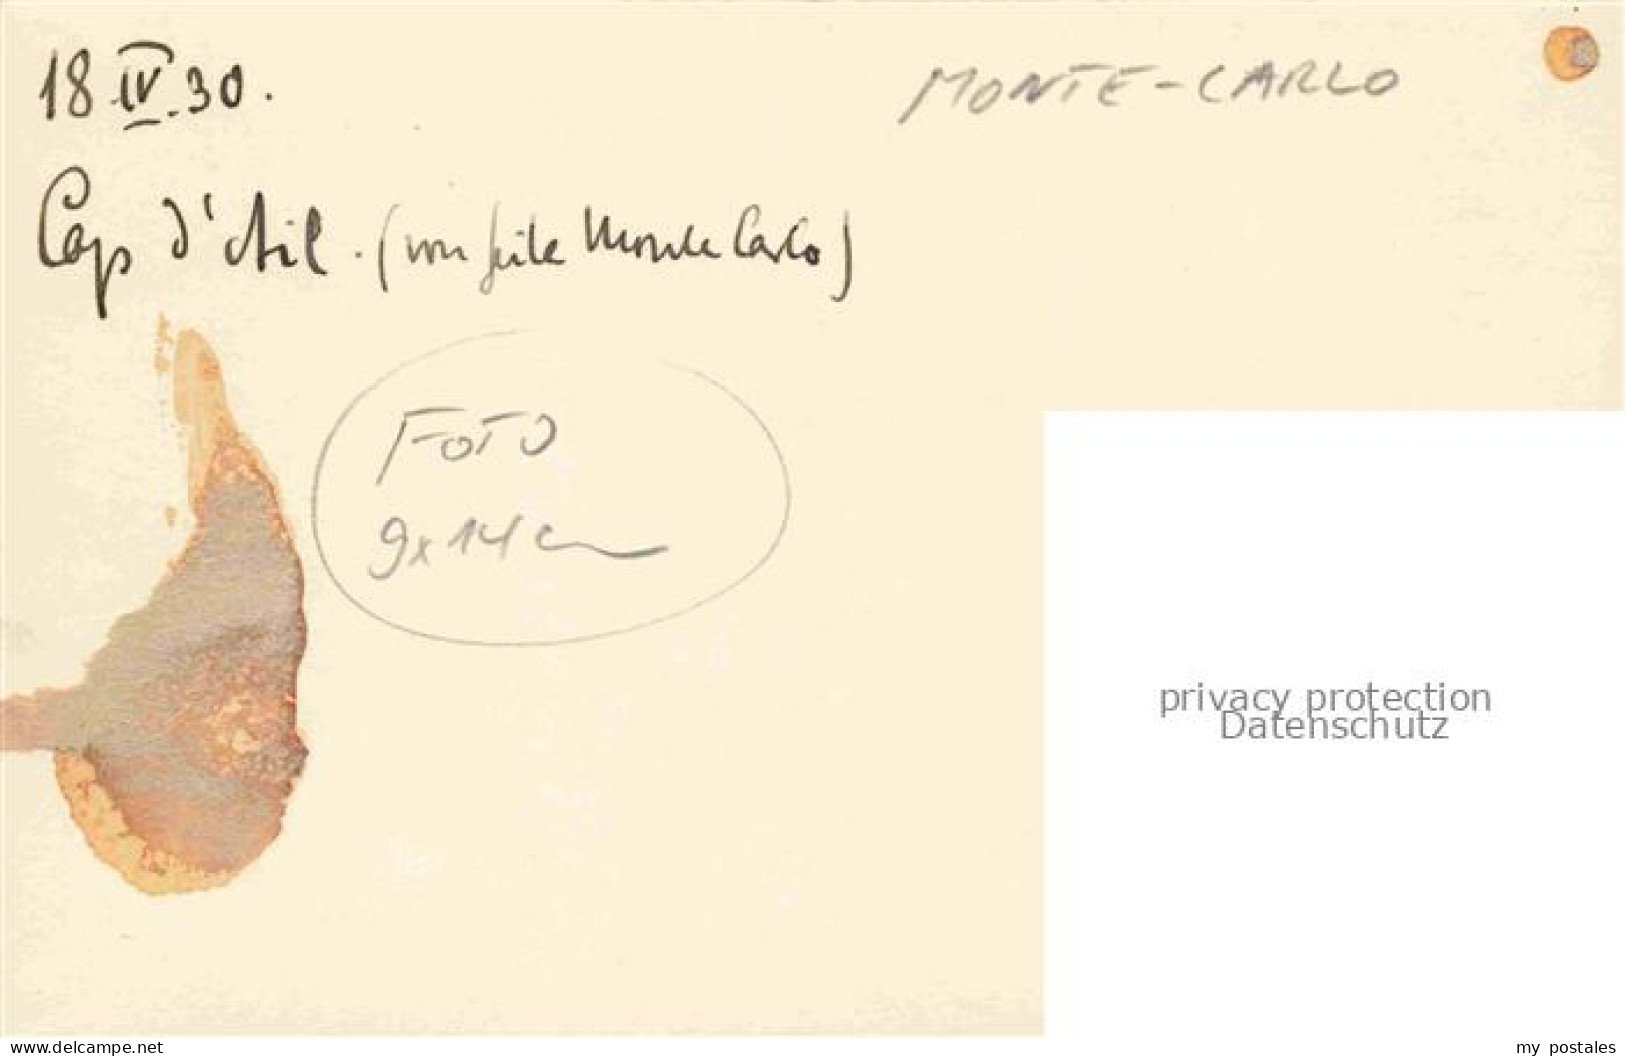 18 IV. 30.
MONTE-CARLO
Cap d'Ail. (von Seite Monte Carlo)
FOTO
9x14 cm
privacy protection
Datenschutz
www.delcampe.net
my postales